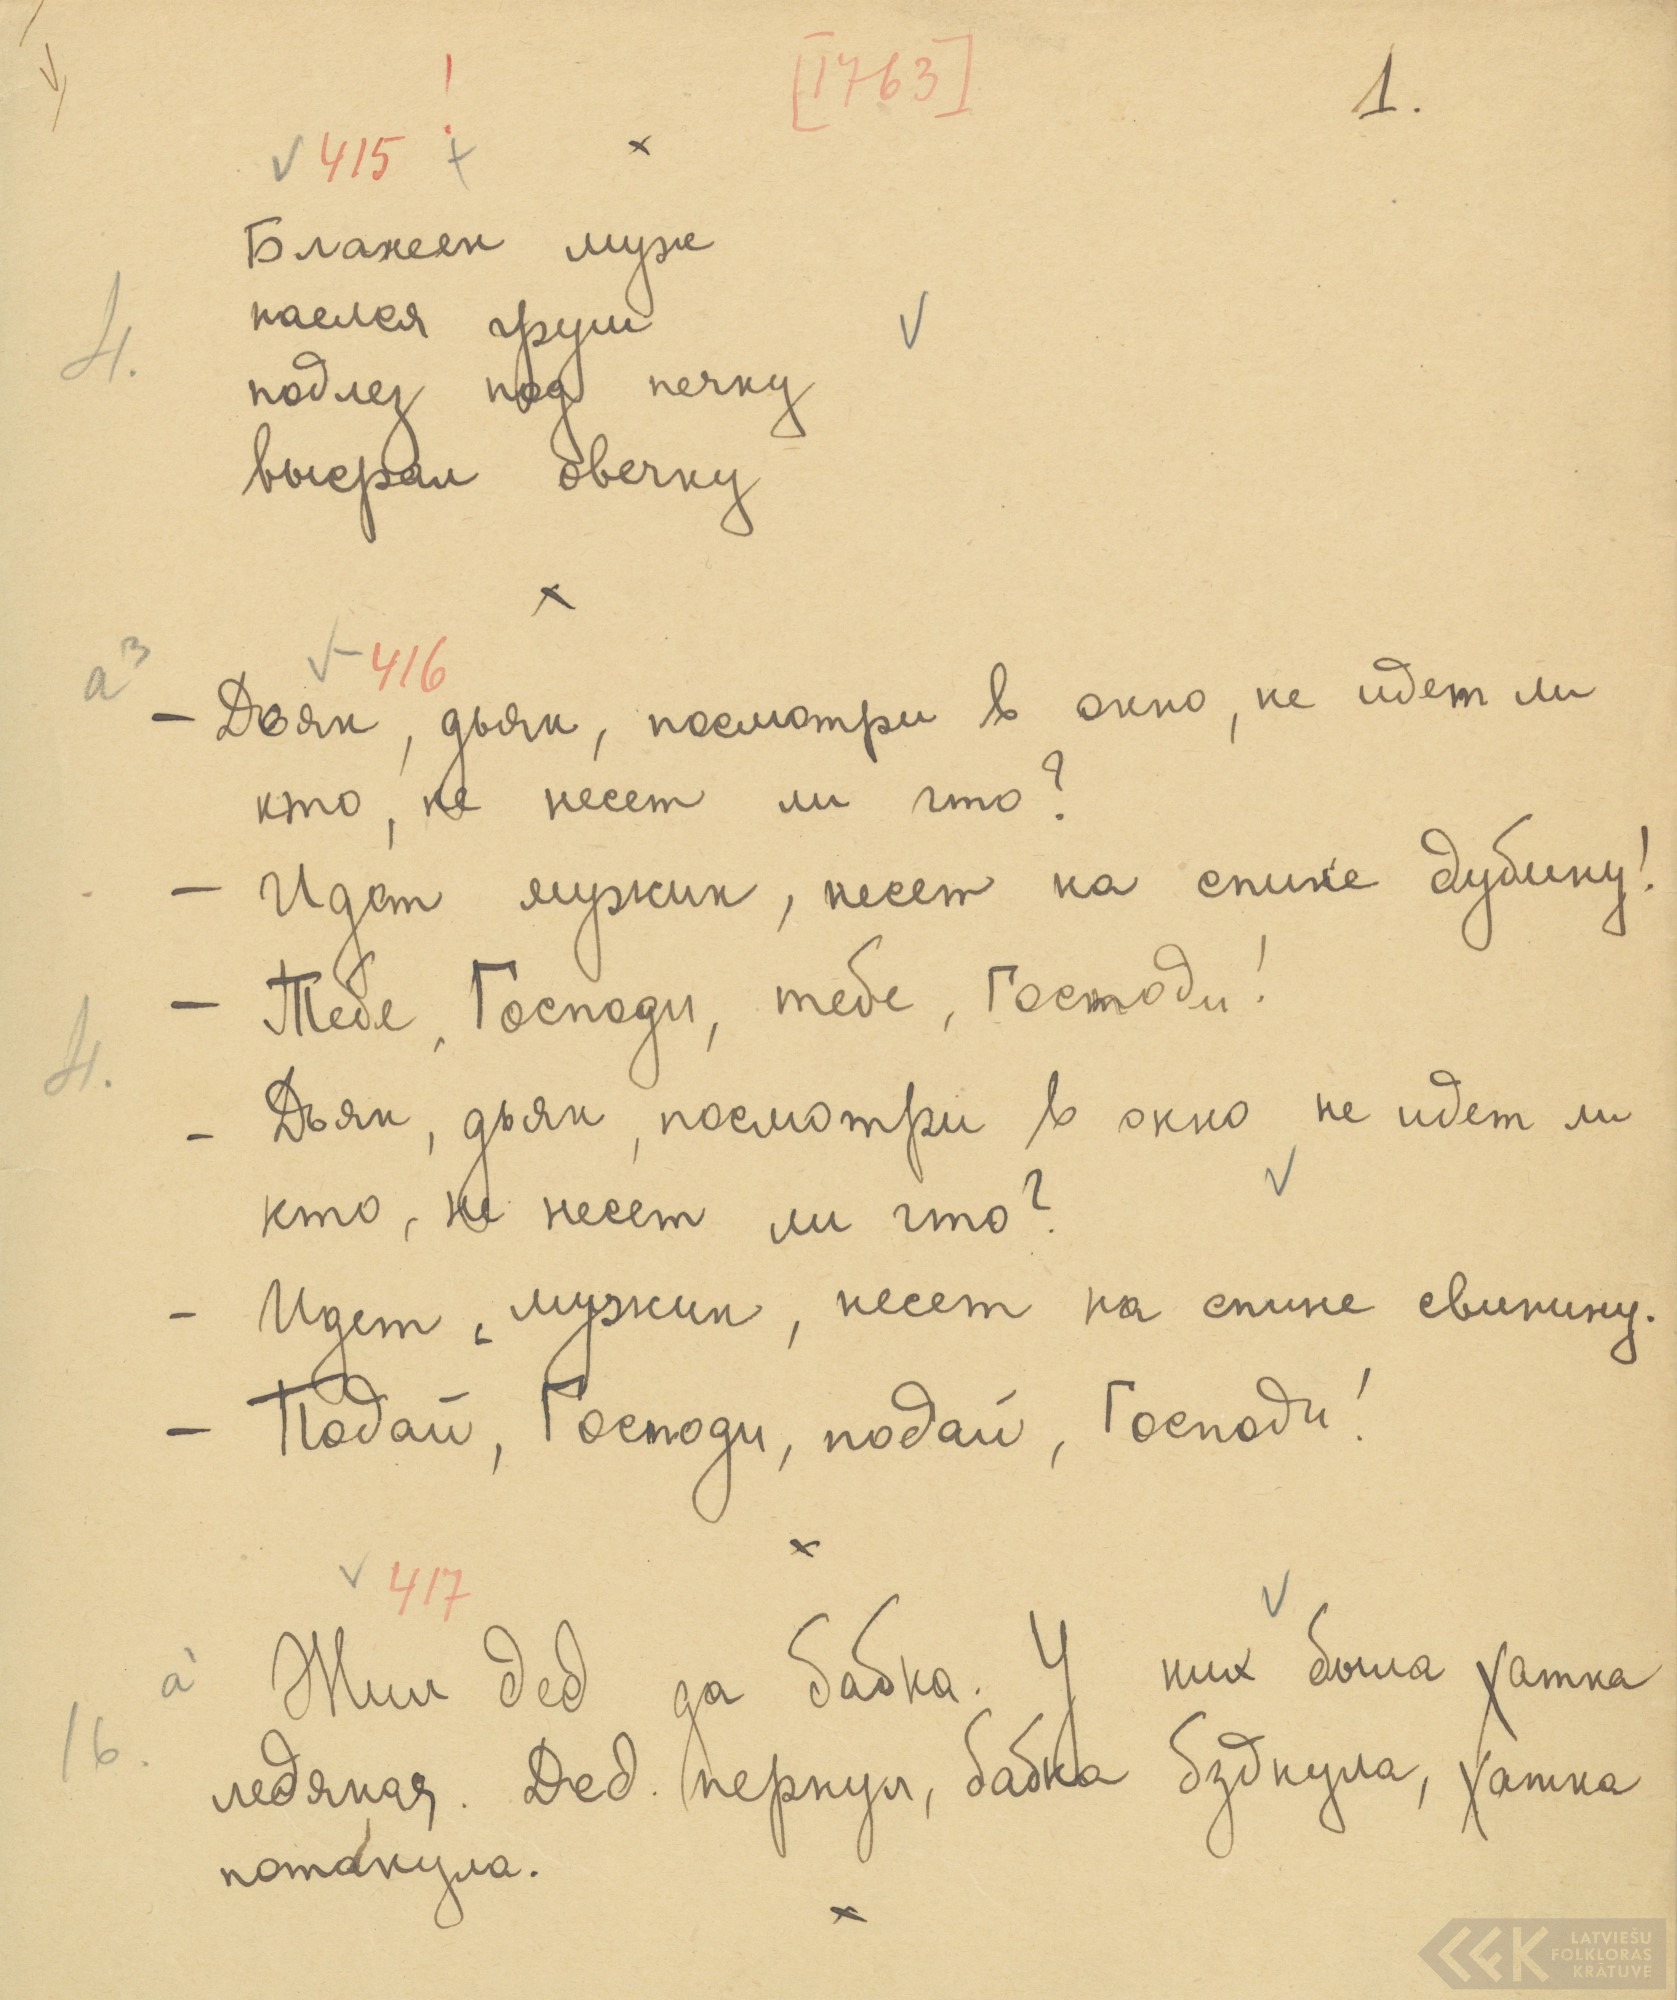 [1763]
1.
415
Блажеен муж
наелся груш
4.
подлез под печку
высрал овечку
416
а³
– Дьяк, дьяк, посмотри в окно, не идет ли
кто, не несет ли что?
– Идет мужик, несет на спине дубину!
– Тебе, Господи, тебе, Господи!
4.
– Дьяк, дьяк, посмотри в окно не идет ли
кто, не несет ли что?
– Идет, мужик, несет на спине свинину.
– Подай, Господи, подай, Господи!
417
а¹ Жил дед да бабка. У них была хатка
16.
ледяная. Дед пернул, бабка бзднула, хатка
потанула.
LATVIEŠU
FOLKLORAS
KRĀTUVE